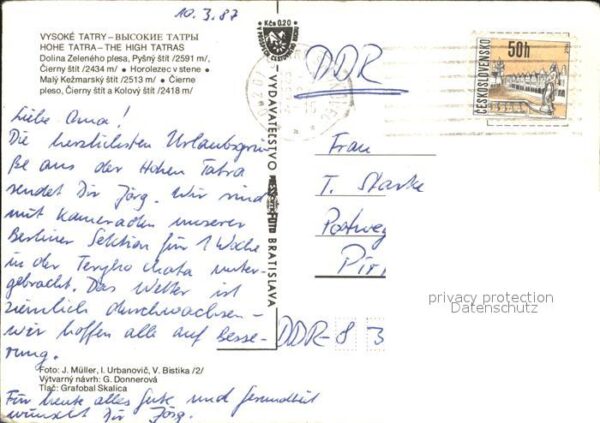 10.3.87
VYSOKÉ TATRY – ВЫСОКИЕ ТАТРЫ
HOHE TATRA – THE HIGH TATRAS
Dolina Zeleného plesa, Pyšný štít /2591 m/,
Čierny štít /2434 m/ • Horolezec v stene •
Malý Kežmarský štít /2513 m/ • Čierne
pleso, Čierny štít a Kolový štít /2418 m/
Liebe Oma!
Die herzlichsten Urlaubsgrü-
ße aus der Hohen Tatra
sendet Dir Jörg. Wir sind
mit Kameraden unserer
Berliner Sektion für 1 Woche
in der Teryho chata unter-
gebracht. Das Wetter ist
ziemlich durchwachsen –
wir hoffen alle auf Besse-
rung.
Foto: J. Müller, I. Urbanovič, V. Bistika /2/
Výtvarný návrh: G. Donnerová
Tlač: Grafobal Skalica
Für heute alles Gute und Gesundheit
wünscht Dir Jörg.
Kčs 0,20
VYDAVATEĽSTVO
BRATISLAVA
50h
ČESKOSLOVENSKO
DDR
Frau
T. Starke
Postweg
Pir
DDR-8 3
privacy protection
Datenschutz